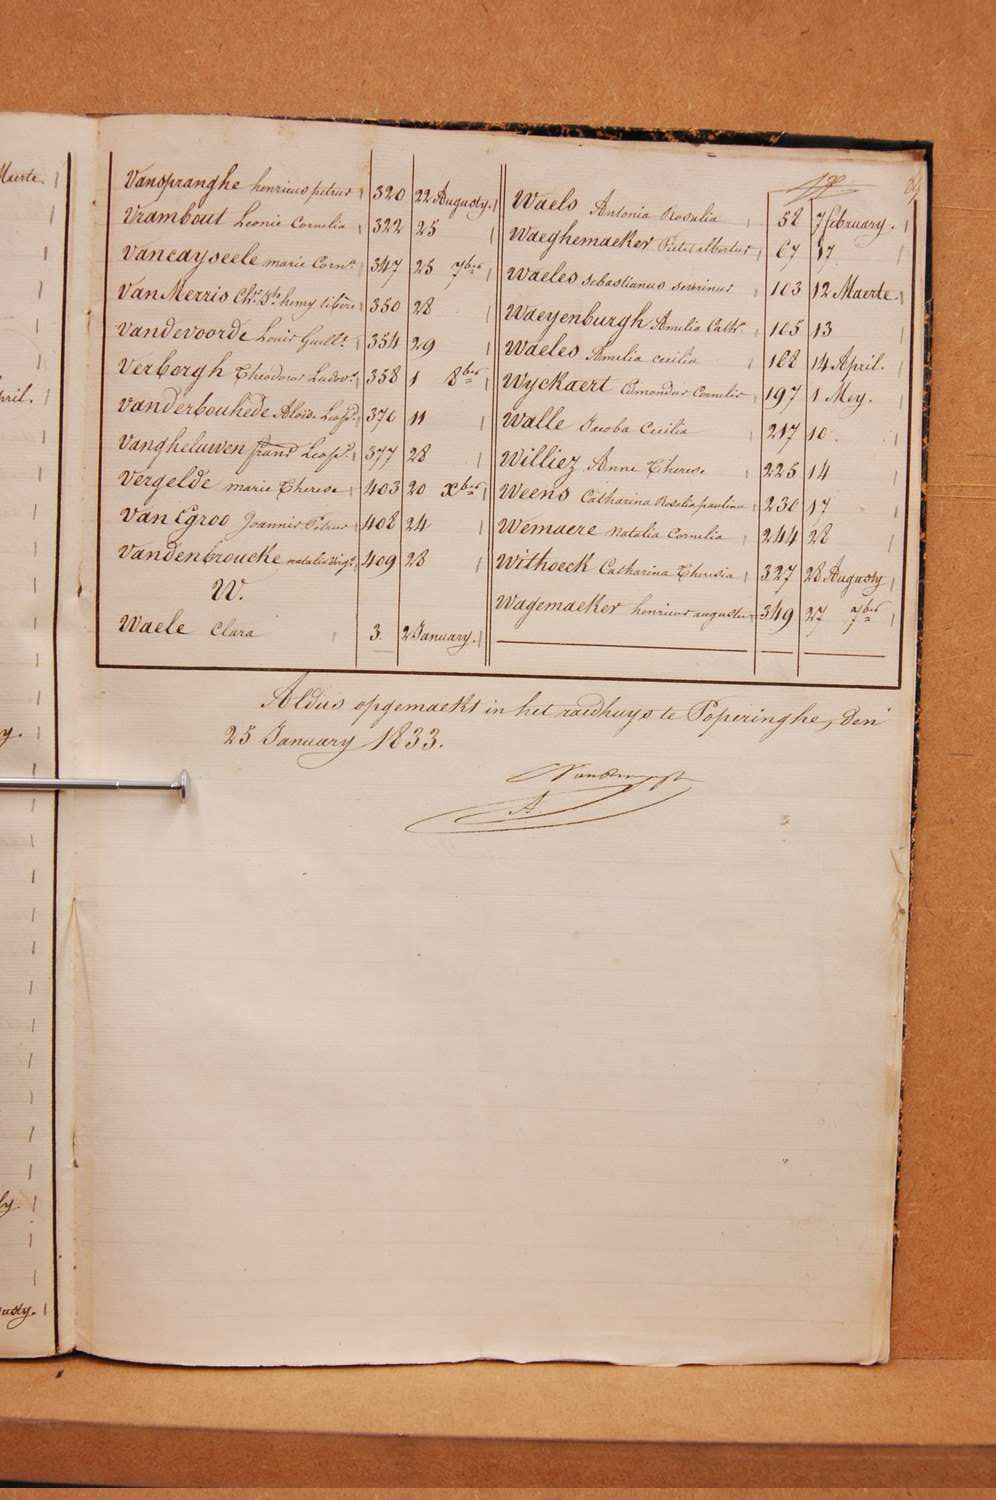 Maerte.
Vanspranghe henricus petrus 320 22 Augusty.
Vrambout Leonie Cornelia 322 25
Vancayseele marie Corn.ª 347 25 7ber
Van Merris Ch.s Bte henry libère 350 28
Vandevoorde Louis Guill.e 354 29
Verborgh Theodorus Ludov.s 358 1 8ber
Vanderbouhede Alois. Leop.d 370 11
Vangheluwen frans Leop.d 377 28
Vergelde marie Therese 403 20 Xber
Van Egroo Joannis Petrus 408 24
Vandenbroucke natalie Virg.e 409 28
W.
Waele Clara 3. 2 January.
Waels Antonia Rosalia 58 7 february.
Waeghemaeker Pieter albertus 67 17
Waeles Sebastianus severinus 103 12 Maerte.
Waeyenburgh Amelia Cath. 105 13
Waeles Amelia cecilia 168 14 April.
Wyckaert Edmondus Cornelis 197 1 Mey.
Walle Jacoba Cecilia 217 10
Williez Anne Therese 225 14
Weens Catharina Rosalia paulina 230 17
Wemaere Natalia Cornelia 244 28
Withoeck Catharina Theresia 327 28 Augusty
Wagemaeker henricus augustus 349 27 7ber
Aldus opgemaekt in het raedhuys te Poperinghe, Den
25 January 1833.